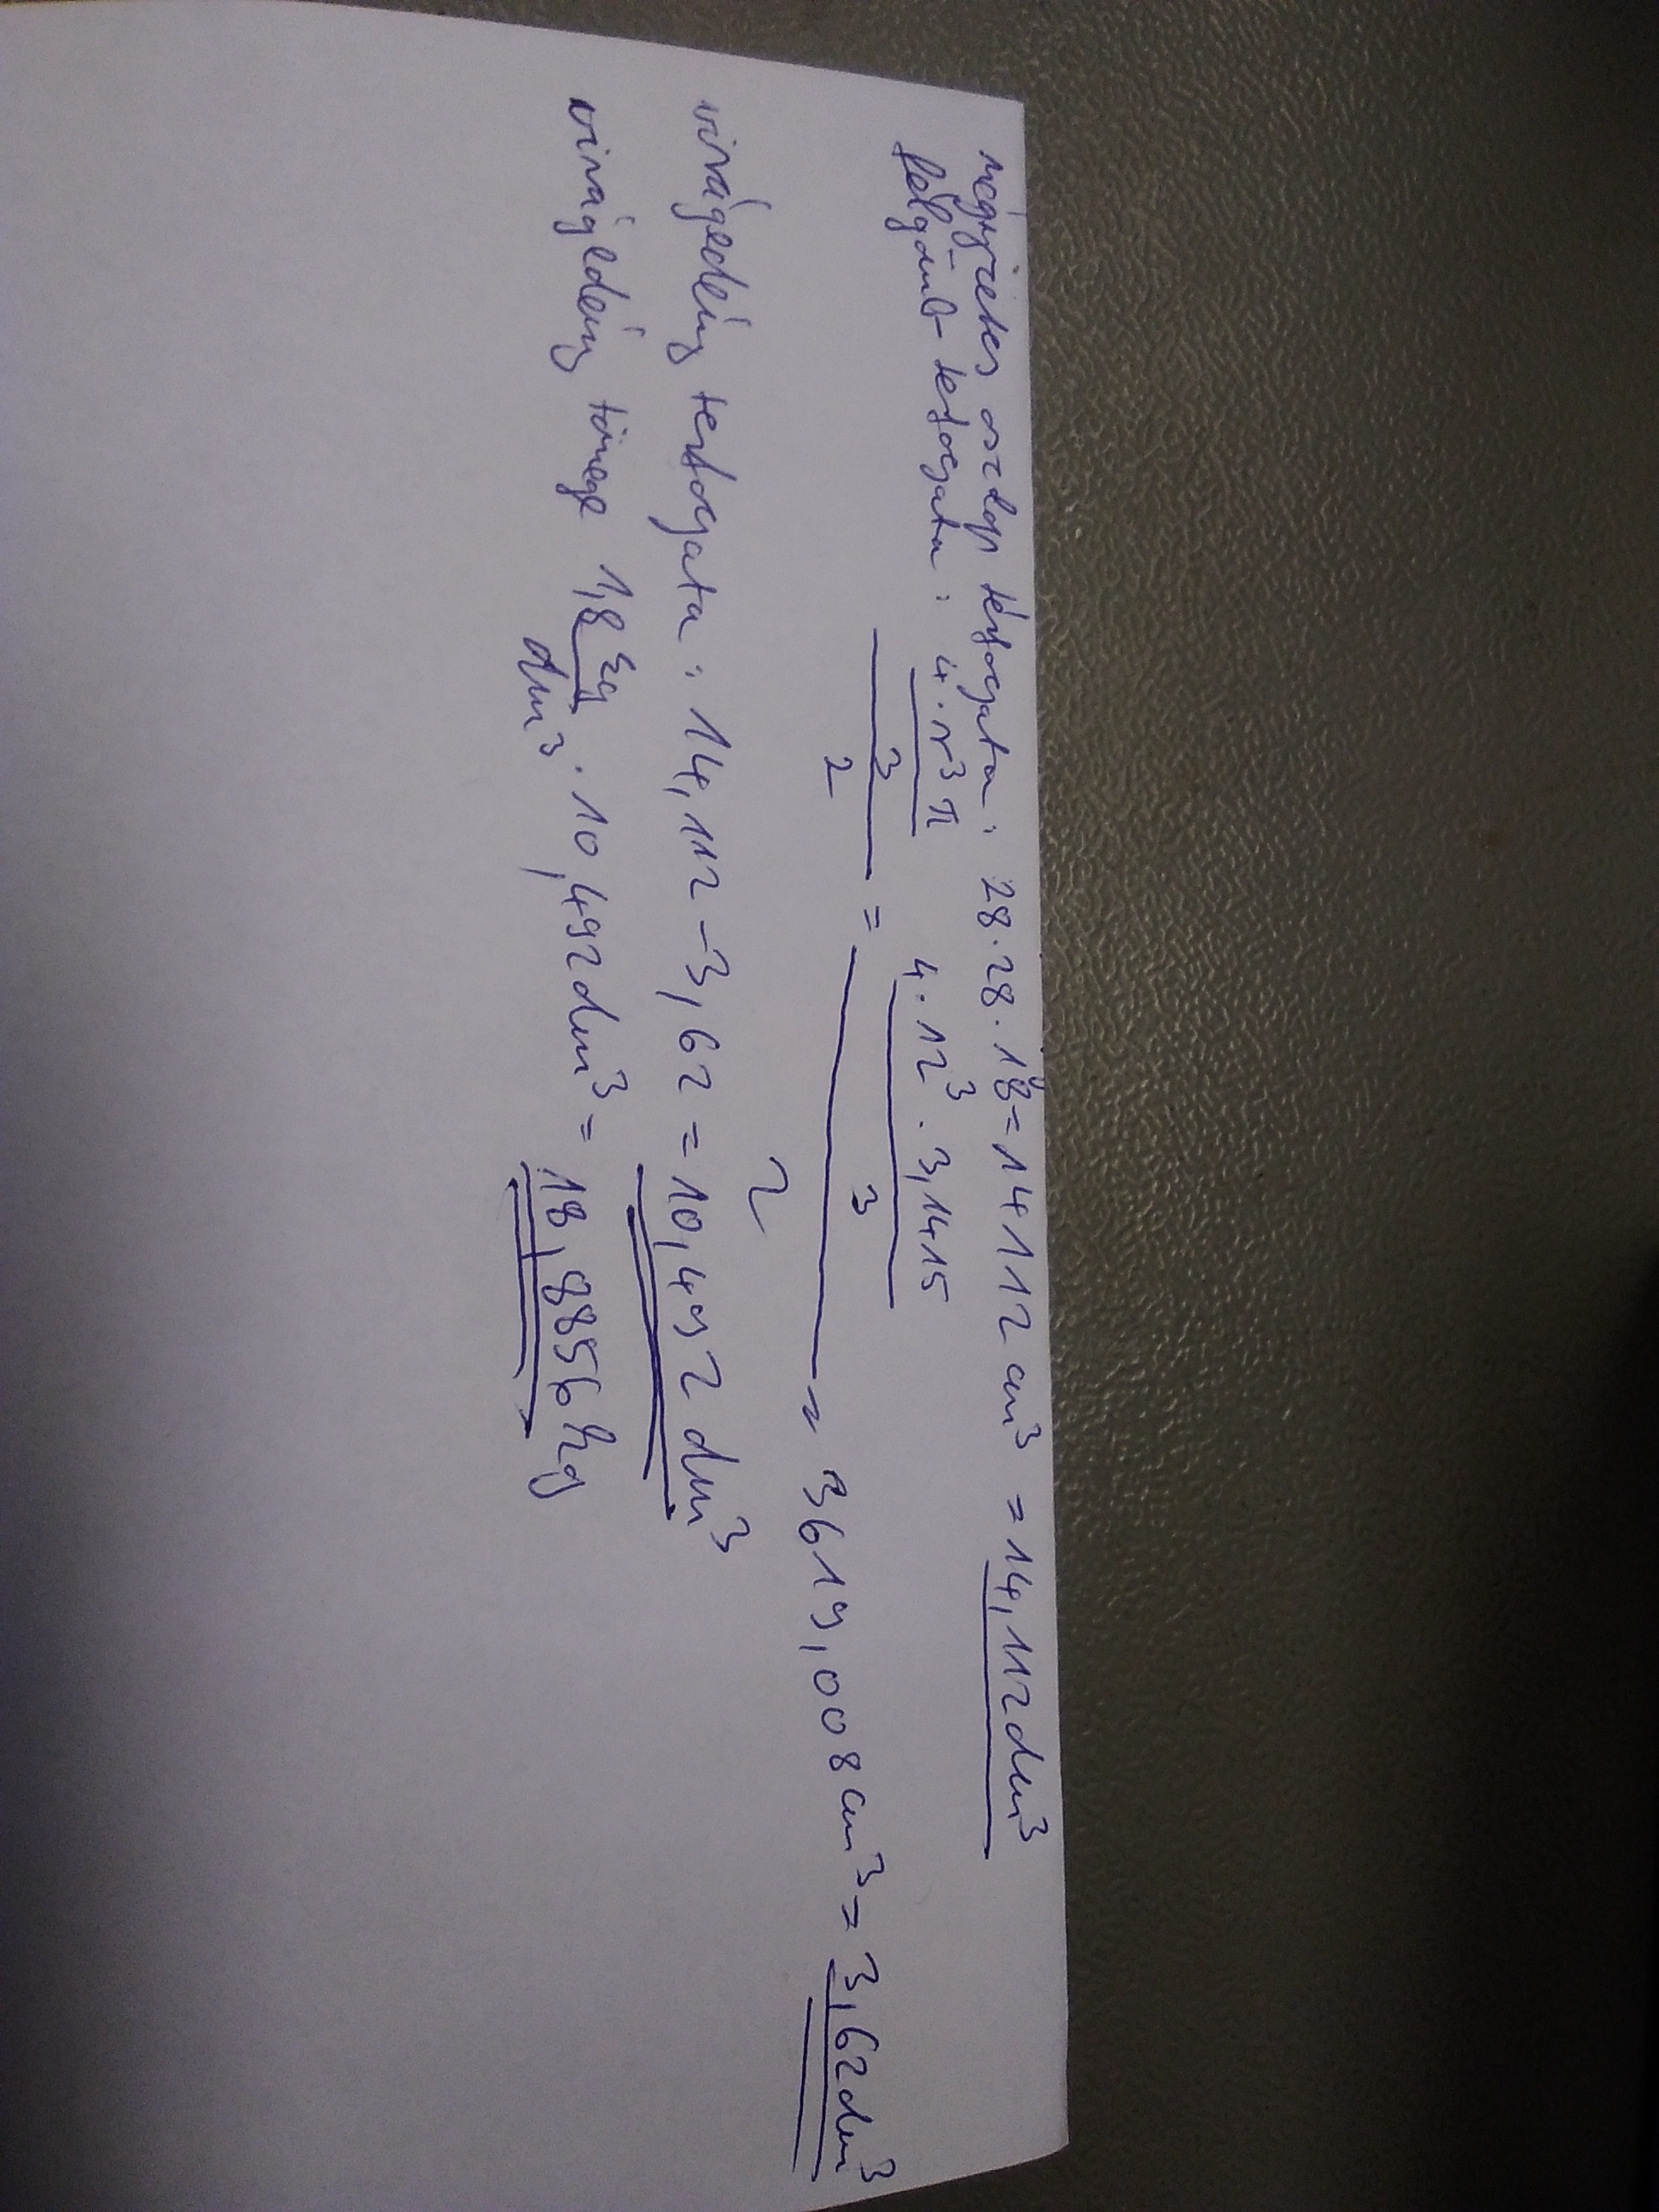 négyzetes oszlop térfogata: 28·28·18=14112 cm³ = 14,112dm³
félgömb térfogata: 4·r³π / 3 / 2 = 4·12³·3,1415 / 3 / 2 = 3619,008cm³ = 3,62dm³
virágedény térfogata: 14,112-3,62=10,492dm³
virágedény tömege 1,8 kg/dm³ · 10,492dm³ = 18,8856kg